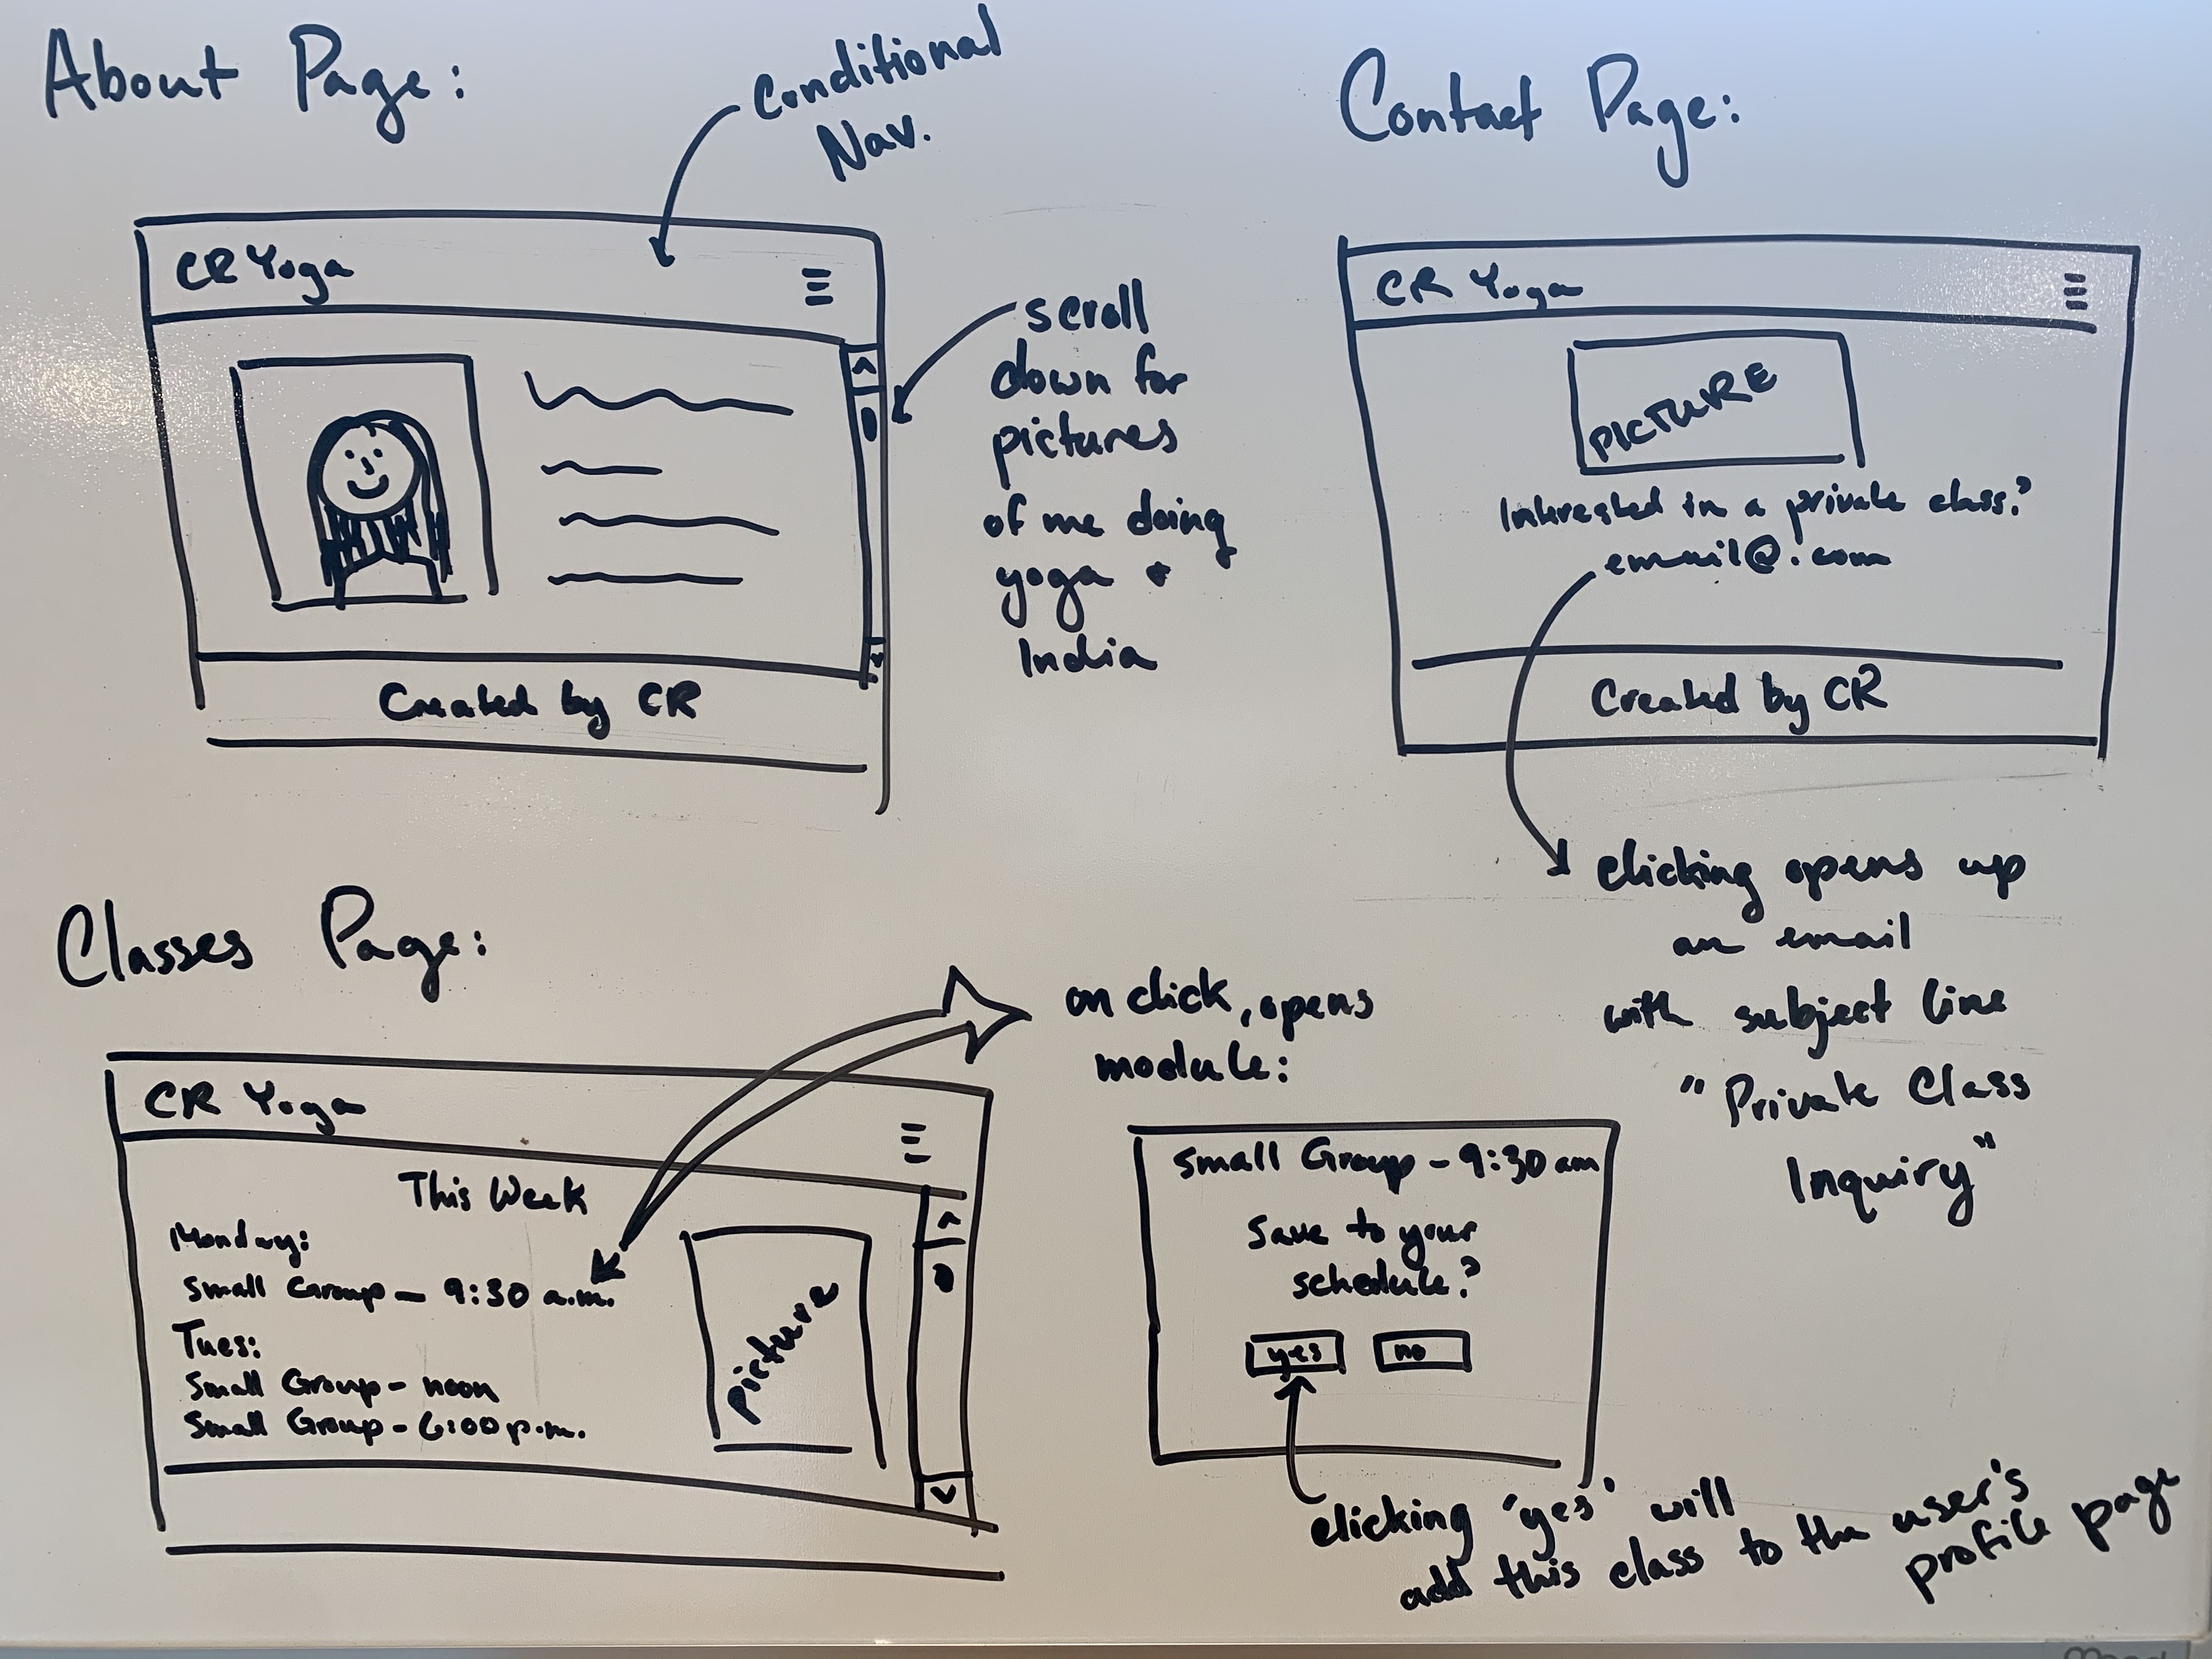 About Page:
Conditional
Nav.
CR Yoga
scroll
down for
pictures
of me doing
yoga +
India
Created by CR
Contact Page:
CR Yoga
PICTURE
Interested in a private class?
email@.com
Created by CR
clicking opens up
an email
with subject line
"Private Class
Inquiry"
Classes Page:
CR Yoga
This Week
Monday:
Small Group - 9:30 a.m.
Tues:
Small Group - noon
Small Group - 6:00 p.m.
picture
on click, opens
module:
Small Group - 9:30 am
Save to your
schedule?
yes no
clicking 'yes' will
add this class to the user's
profile page